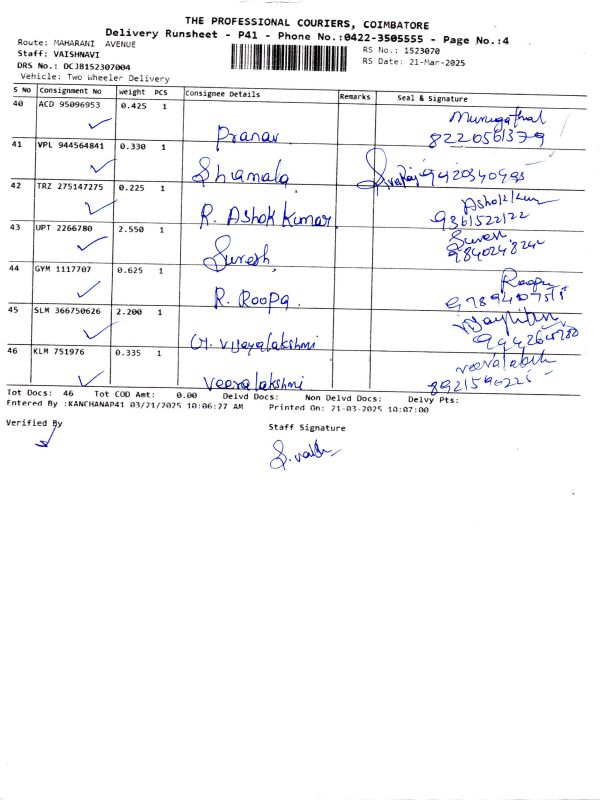 THE PROFESSIONAL COURIERS, COIMBATORE
Delivery Runsheet - P41 - Phone No.:0422-3505555 - Page No.:4
Route: MAHARANI AVENUE
RS No.: 1523070
Staff: VAISHNAVI
RS Date: 21-Mar-2025
DRS No.: DCJB152307004
Vehicle: Two Wheeler Delivery
S No Consignment No Weight PCS Consignee Details Remarks Seal & Signature
40 ACD 95096953 0.425 1 Pranav Murugathal
41 VPL 944564841 0.330 1 Shiamala
42 TRZ 275147275 0.225 1 R. Ashok Kumar Ashok kum
9361522122
43 UPT 2266780 2.550 1 Suresh Suresh
44 GYM 1117707 0.625 1 R. Roopa Roopa
45 SLM 366750626 2.200 1 G. Vijayalakshmi
46 KLM 751976 0.335 1 Veeralakshmi
Tot Docs: 46 Tot COD Amt: 0.00 Delvd Docs: Non Delvd Docs: Delvy Pts:
Entered By :KANCHANAP41 03/21/2025 10:06:27 AM Printed On: 21-03-2025 10:07:00
Verified By
Staff Signature